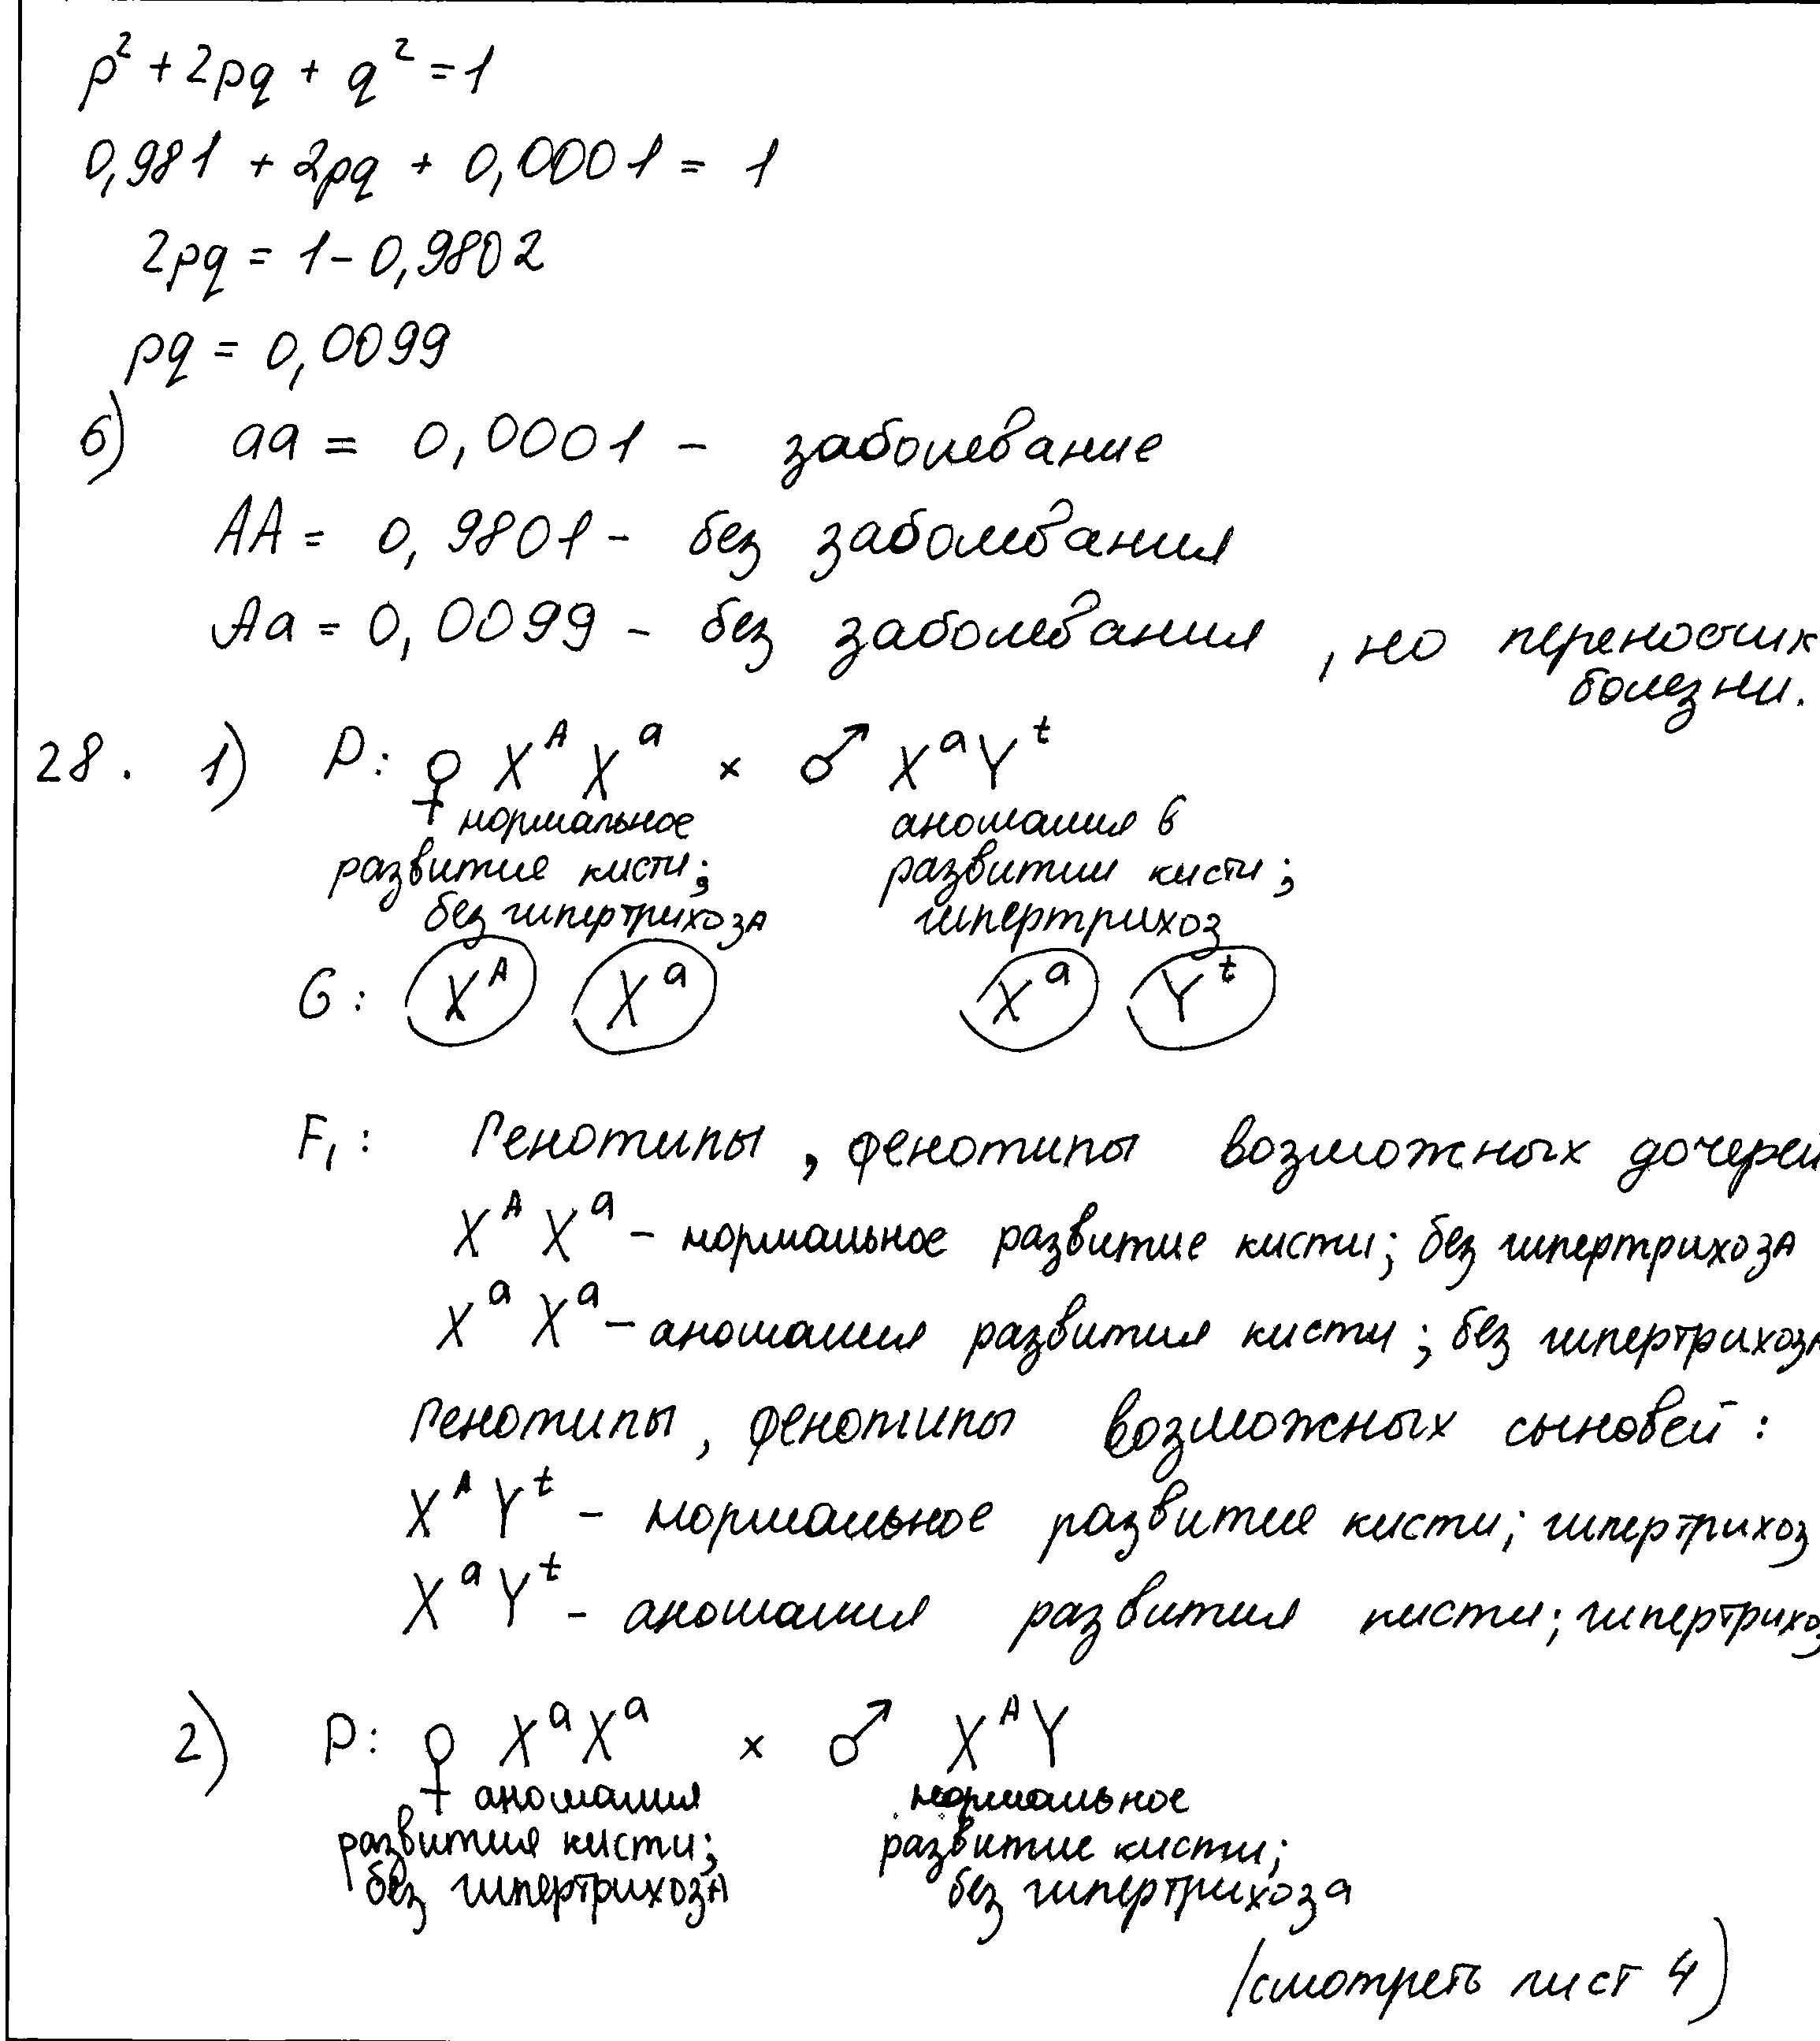 p² + 2pq + q² = 1
0,981 + 2pq + 0,0001 = 1
2pq = 1 - 0,9802
pq = 0,0099
б) aa = 0,0001 - заболевание
AA = 0,9801 - без заболевания
Aa = 0,0099 - без заболевания, но переносчик
болезни.
28. 1) P: ♀ Xᴬ Xᵃ × ♂ XᵃYᵗ
нормальное аномалия в
развитие кисти; развитии кисти;
без гипертрихоза гипертрихоз
G: Xᴬ Xᵃ Xᵃ Yᵗ
F₁: Генотипы, фенотипы возможных дочерей
Xᴬ Xᵃ - нормальное развитие кисти; без гипертрихоза
Xᵃ Xᵃ - аномалия развития кисти; без гипертрихоза
Генотипы, фенотипы возможных сыновей:
Xᴬ Yᵗ - нормальное развитие кисти; гипертрихоз
Xᵃ Yᵗ - аномалия развития кисти; гипертрихоз
2) P: ♀ XᵃXᵃ × ♂ XᴬY
аномалия нормальное
развития кисти; развитие кисти;
без гипертрихоза без гипертрихоза
(смотреть лист 4)